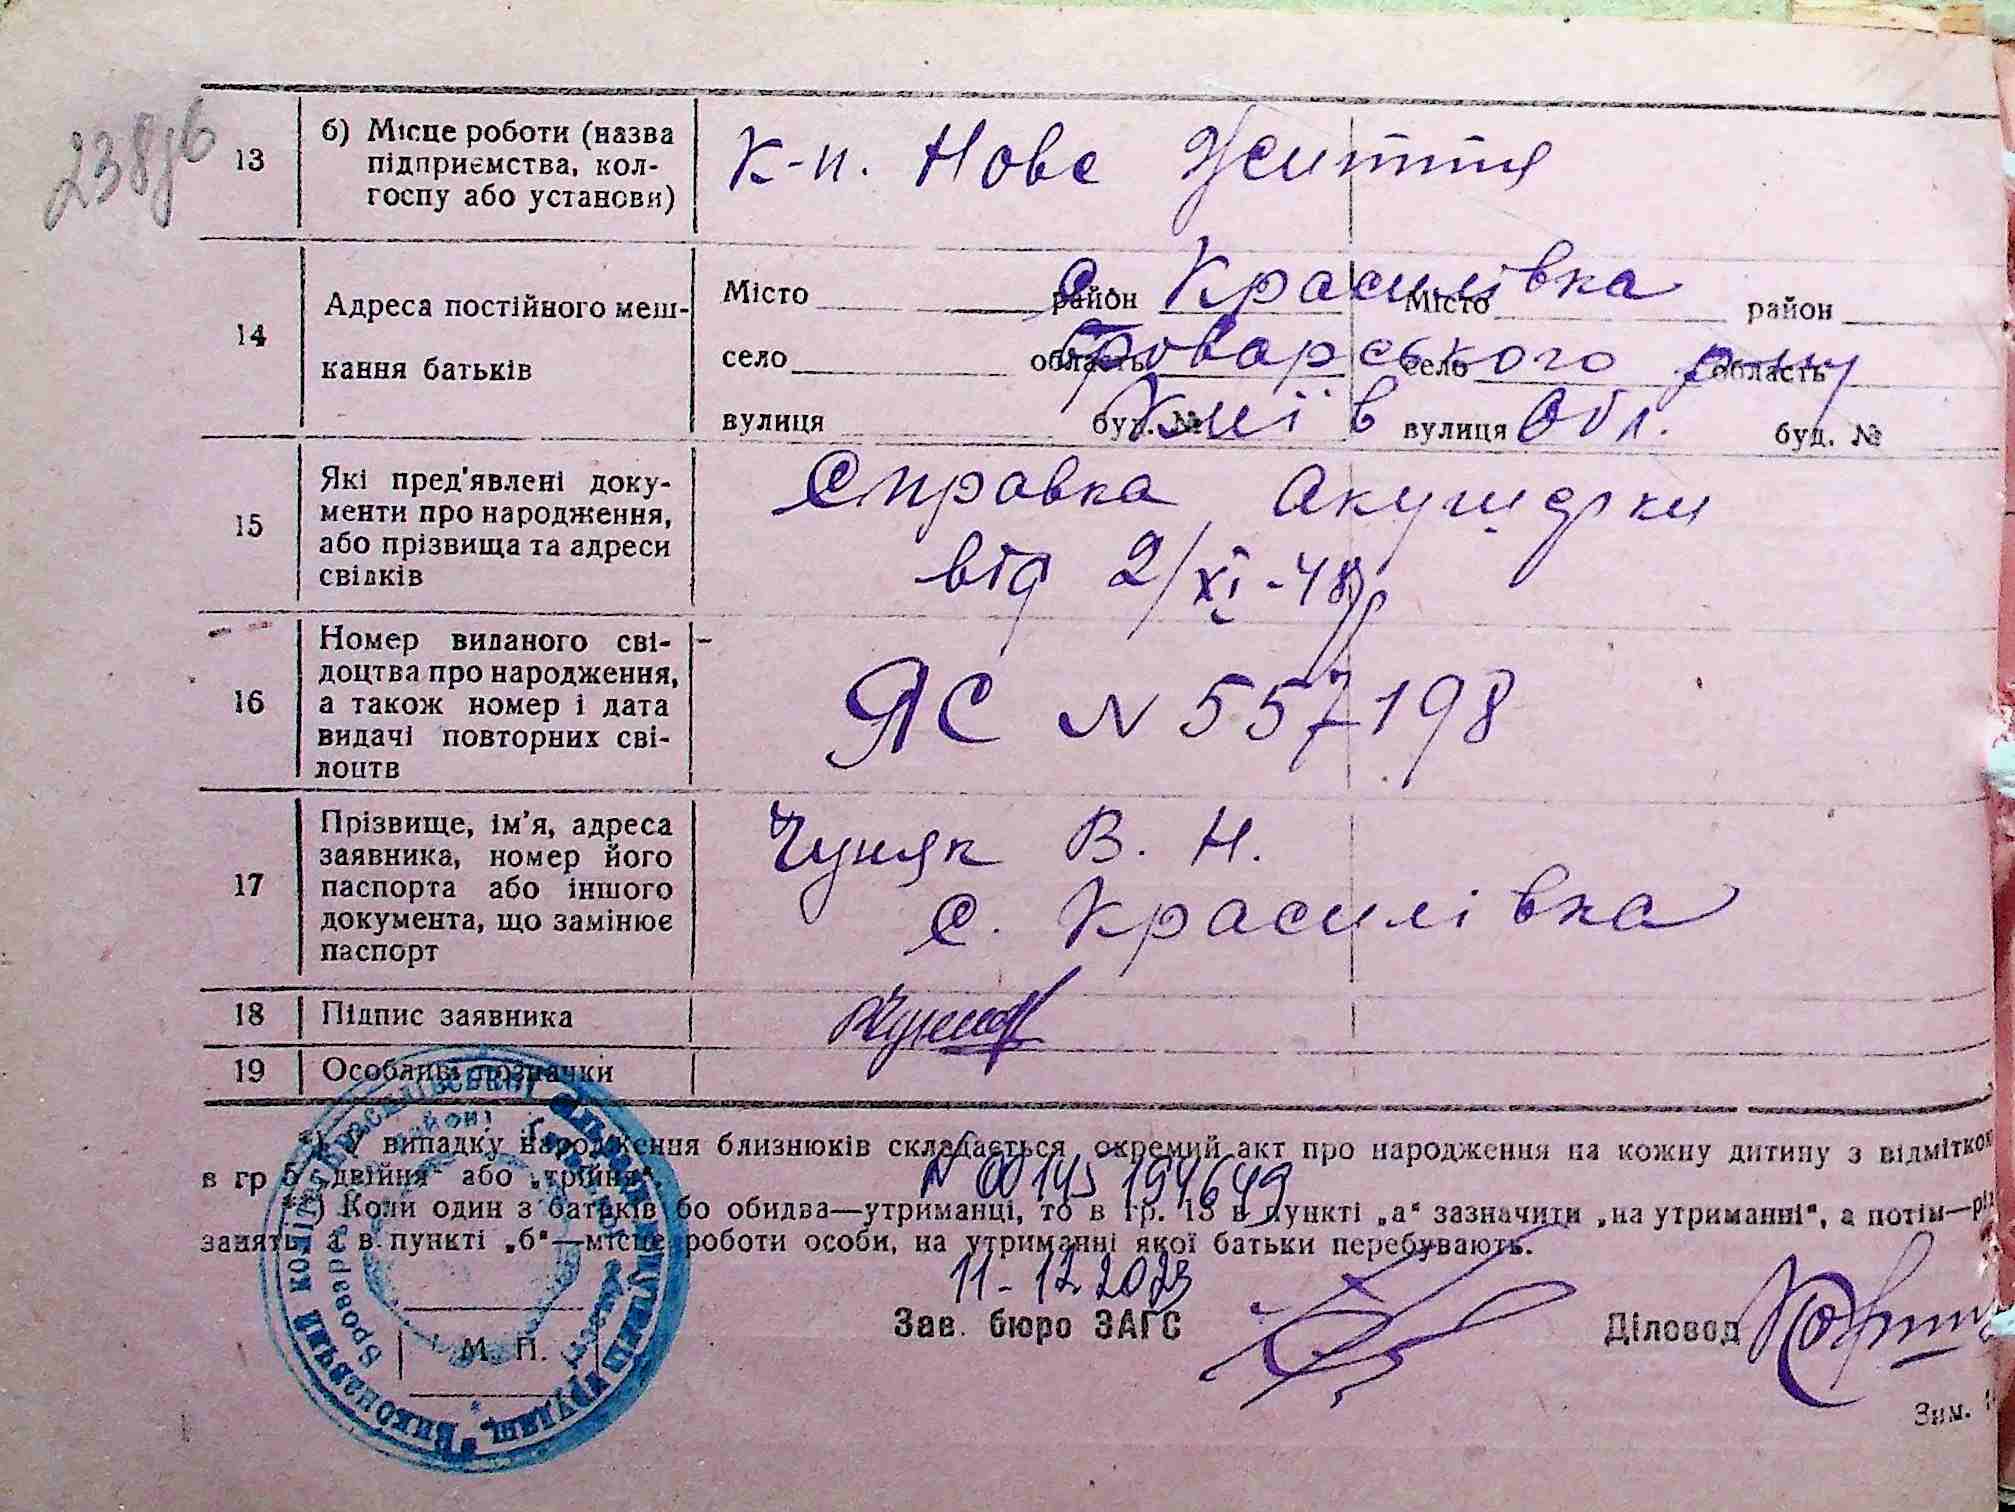 238зв
13
б) Місце роботи (назва
підприємства, кол-
госпу або установи)
К-п. Нове Життя
14
Адреса постійного меш-
кання батьків
Місто район Місто район
с. Красилівка
село область село область
Броварського р-ну
вулиця буд. № вулиця буд. №
Київ Обл.
15
Які пред'явлені доку-
менти про народження,
або прізвища та адреси
свідків
Справка Акушерки
від 2/XI-48р
16
Номер виданого сві-
доцтва про народження,
а також номер і дата
видачі повторних сві-
доцтв
ЯС N 557198
17
Прізвище, ім'я, адреса
заявника, номер його
паспорта або іншого
документа, що замінює
паспорт
Чуняк В. Н.
с. Красилівка
18 Підпис заявника
19 Особливі позначки
*) У випадку народження близнюків складається окремий акт про народження на кожну дитину з відміткою
в гр 5 „двійня“ або „трійня“.
N 00145194649
**) Коли один з батьків бо обидва—утриманці, то в гр. 13 в пункті „а“ зазначити „на утриманні“, а потім—
занять, а в пункті „б“—місце роботи особи, на утриманні якої батьки перебувають.
11-12.2023
Зав. бюро ЗАГС Діловод
М. П.
Зим.